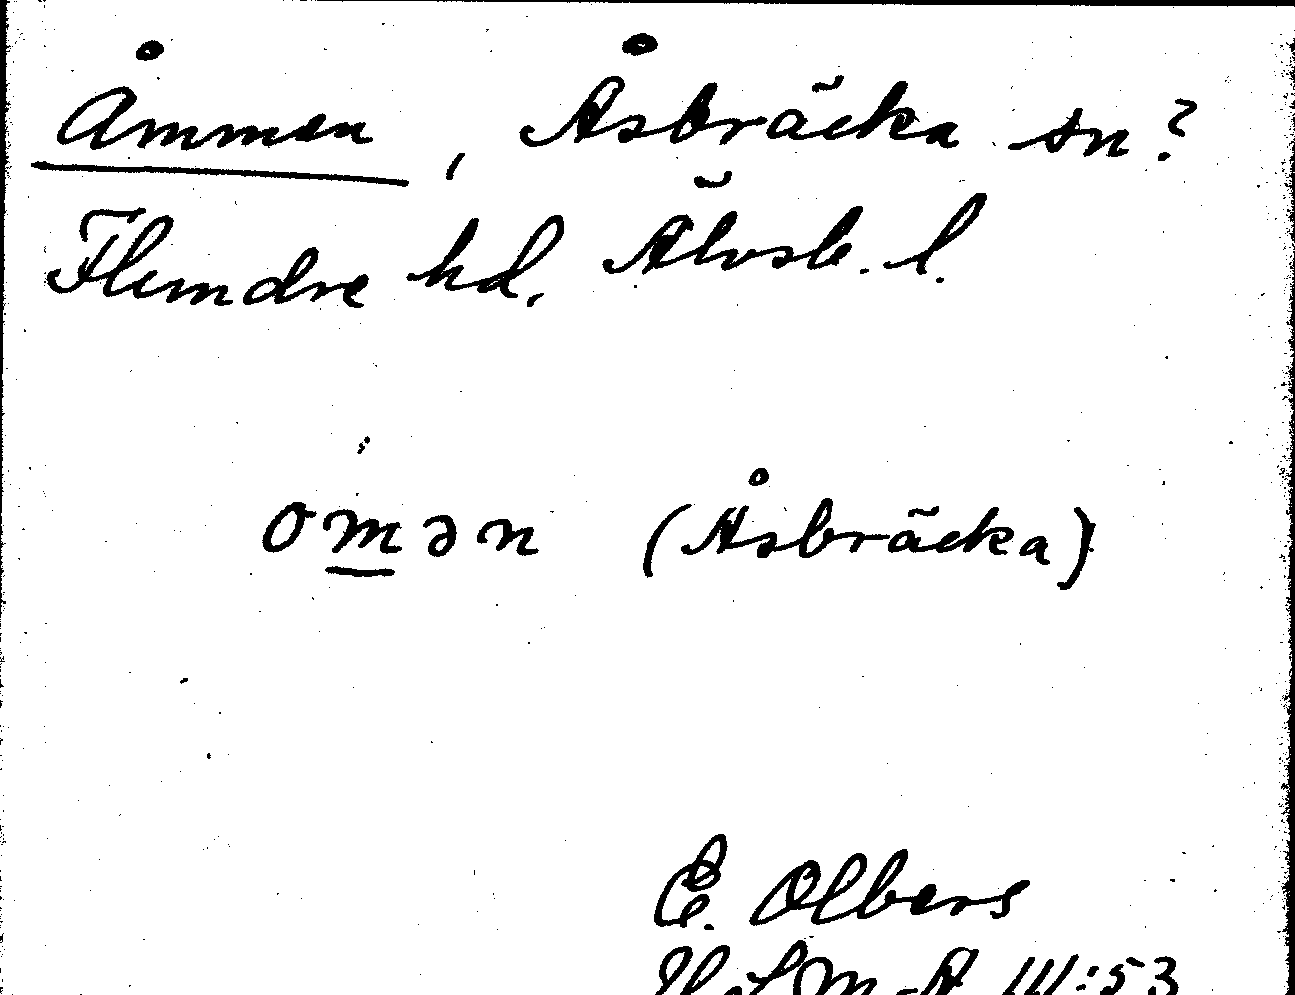 Åmmen, Åsbräcka sn?
Flundre hd, Älvsb. l.
omən (Åsbräcka)
E. Olbers
III:53